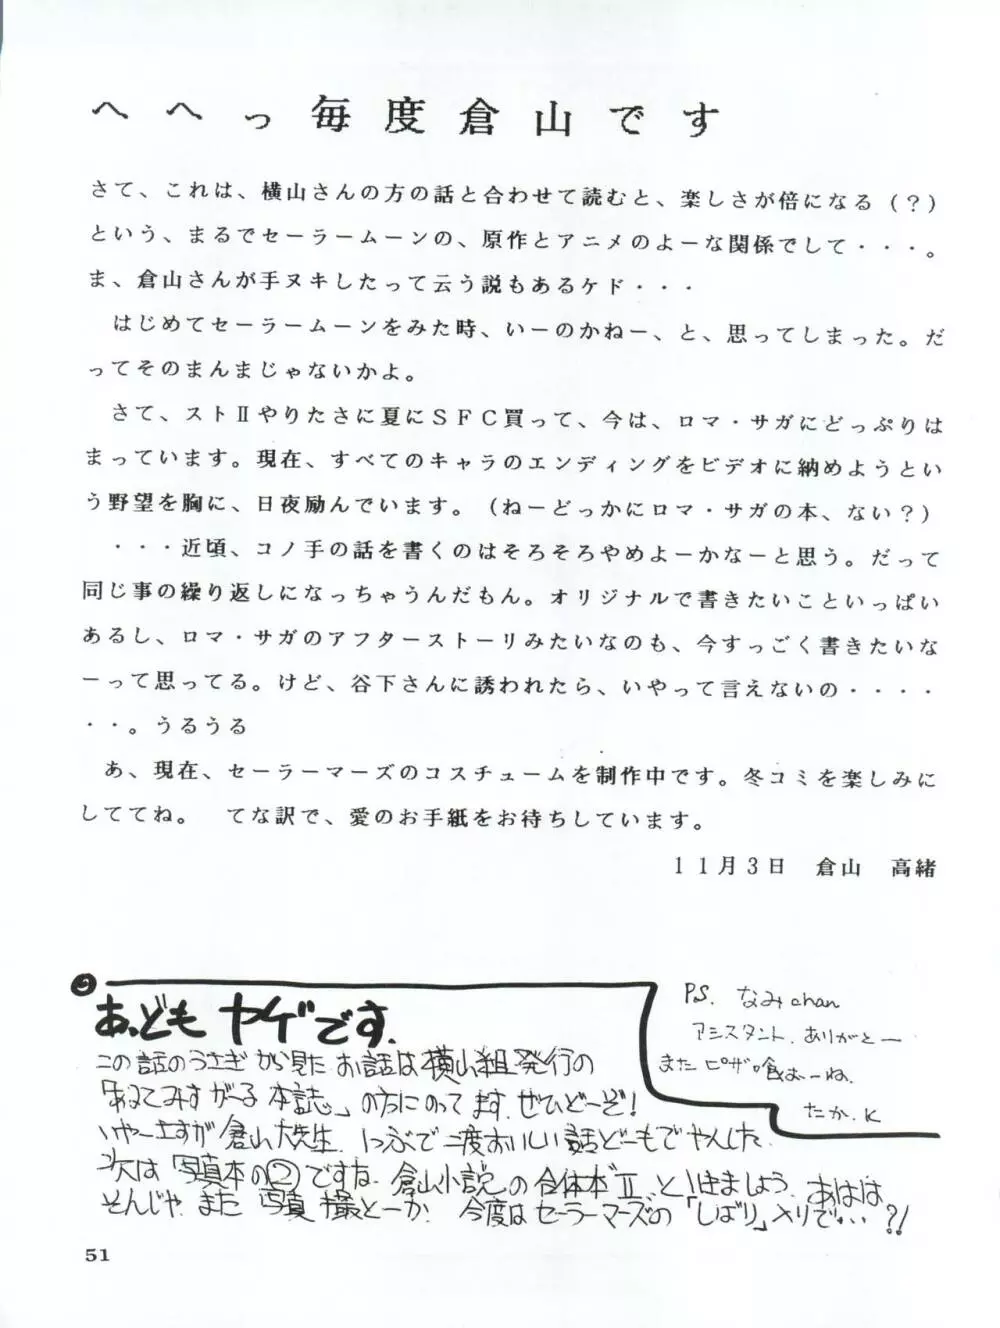 へへっ毎度倉山です
さて、これは、横山さんの方の話と合わせて読むと、楽しさが倍になる（？）
という、まるでセーラームーンの、原作とアニメのよーな関係でして・・・。
ま、倉山さんが手ヌキしたって云う説もあるケド・・・
はじめてセーラームーンをみた時、いーのかねー、と、思ってしまった。だ
ってそのまんまじゃないかよ。
さて、ストⅡやりたさに夏にＳＦＣ買って、今は、ロマ・サガにどっぷりは
まっています。現在、すべてのキャラのエンディングをビデオに納めようとい
う野望を胸に、日夜励んでいます。（ねーどっかにロマ・サガの本、ない？）
・・・近頃、コノ手の話を書くのはそろそろやめよーかなーと思う。だって
同じ事の繰り返しになっちゃうんだもん。オリジナルで書きたいこといっぱい
あるし、ロマ・サガのアフターストーリみたいなのも、今すっごく書きたいな
ーって思ってる。けど、谷下さんに誘われたら、いやって言えないの・・・・
・・。うるうる
あ、現在、セーラーマーズのコスチュームを制作中です。冬コミを楽しみに
しててね。　てな訳で、愛のお手紙をお待ちしています。
１１月３日　倉山　高緒
あ、どもヤゲです。
この話のうさぎから見たお話は横山組発行の
「ねてみすがーる本誌」の方にのってます。ぜひどーぞ!
いやーさすが倉山大先生。1つぶで二度おいしい話どーもでやんした
次は「写真本の②」ですね。倉山小説の合体本Ⅱ、といきましょう。あはは
そんじゃ、また写真撮とーか。今度はセーラーマーズの「しばり」入りで…?!
P.S. なみchan
アシスタント、ありがとー
またピザ喰おーね。
たか.K
51